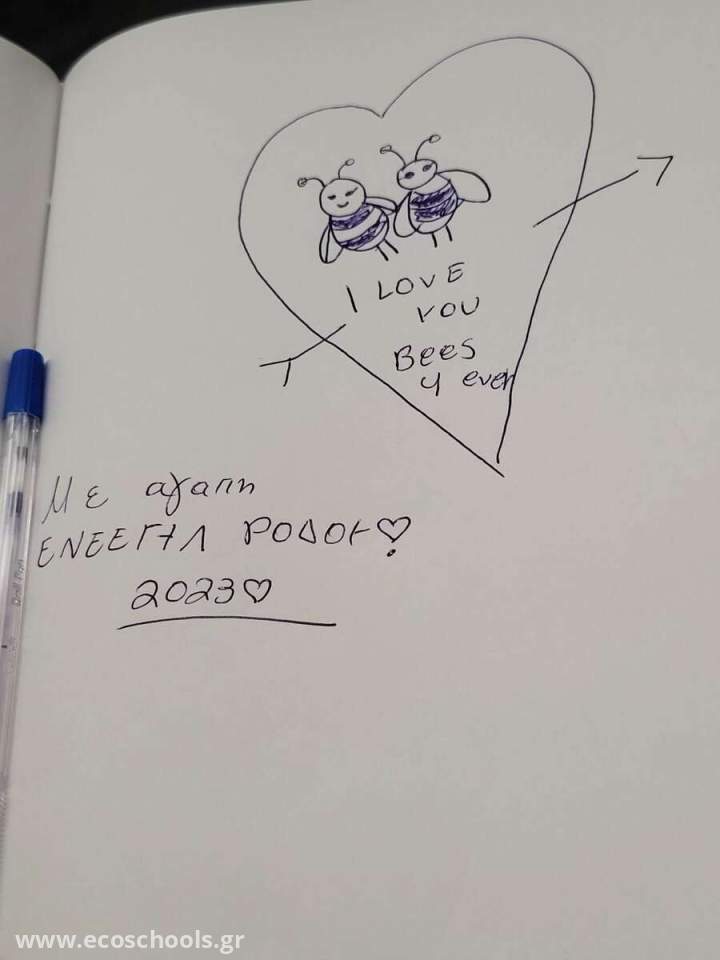 I LOVE
YOU
Bees
4 ever
Με αγαπη
ΕΝΕΕΓΥΛ ΡΟΔΟΥ
2023
www.ecoschools.gr